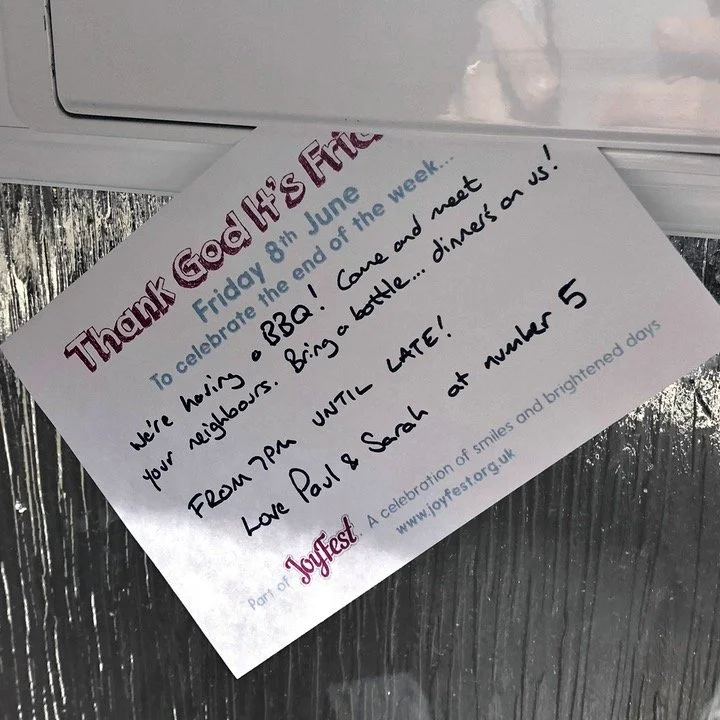 Thank God It's Frid
Friday 8th June
To celebrate the end of the week...
We're having a BBQ! Come and meet
your neighbours. Bring a bottle... dinner's on us!
FROM 7PM UNTIL LATE!
Love Paul & Sarah at number 5
Part of JoyFest A celebration of smiles and brightened days
www.joyfest.org.uk